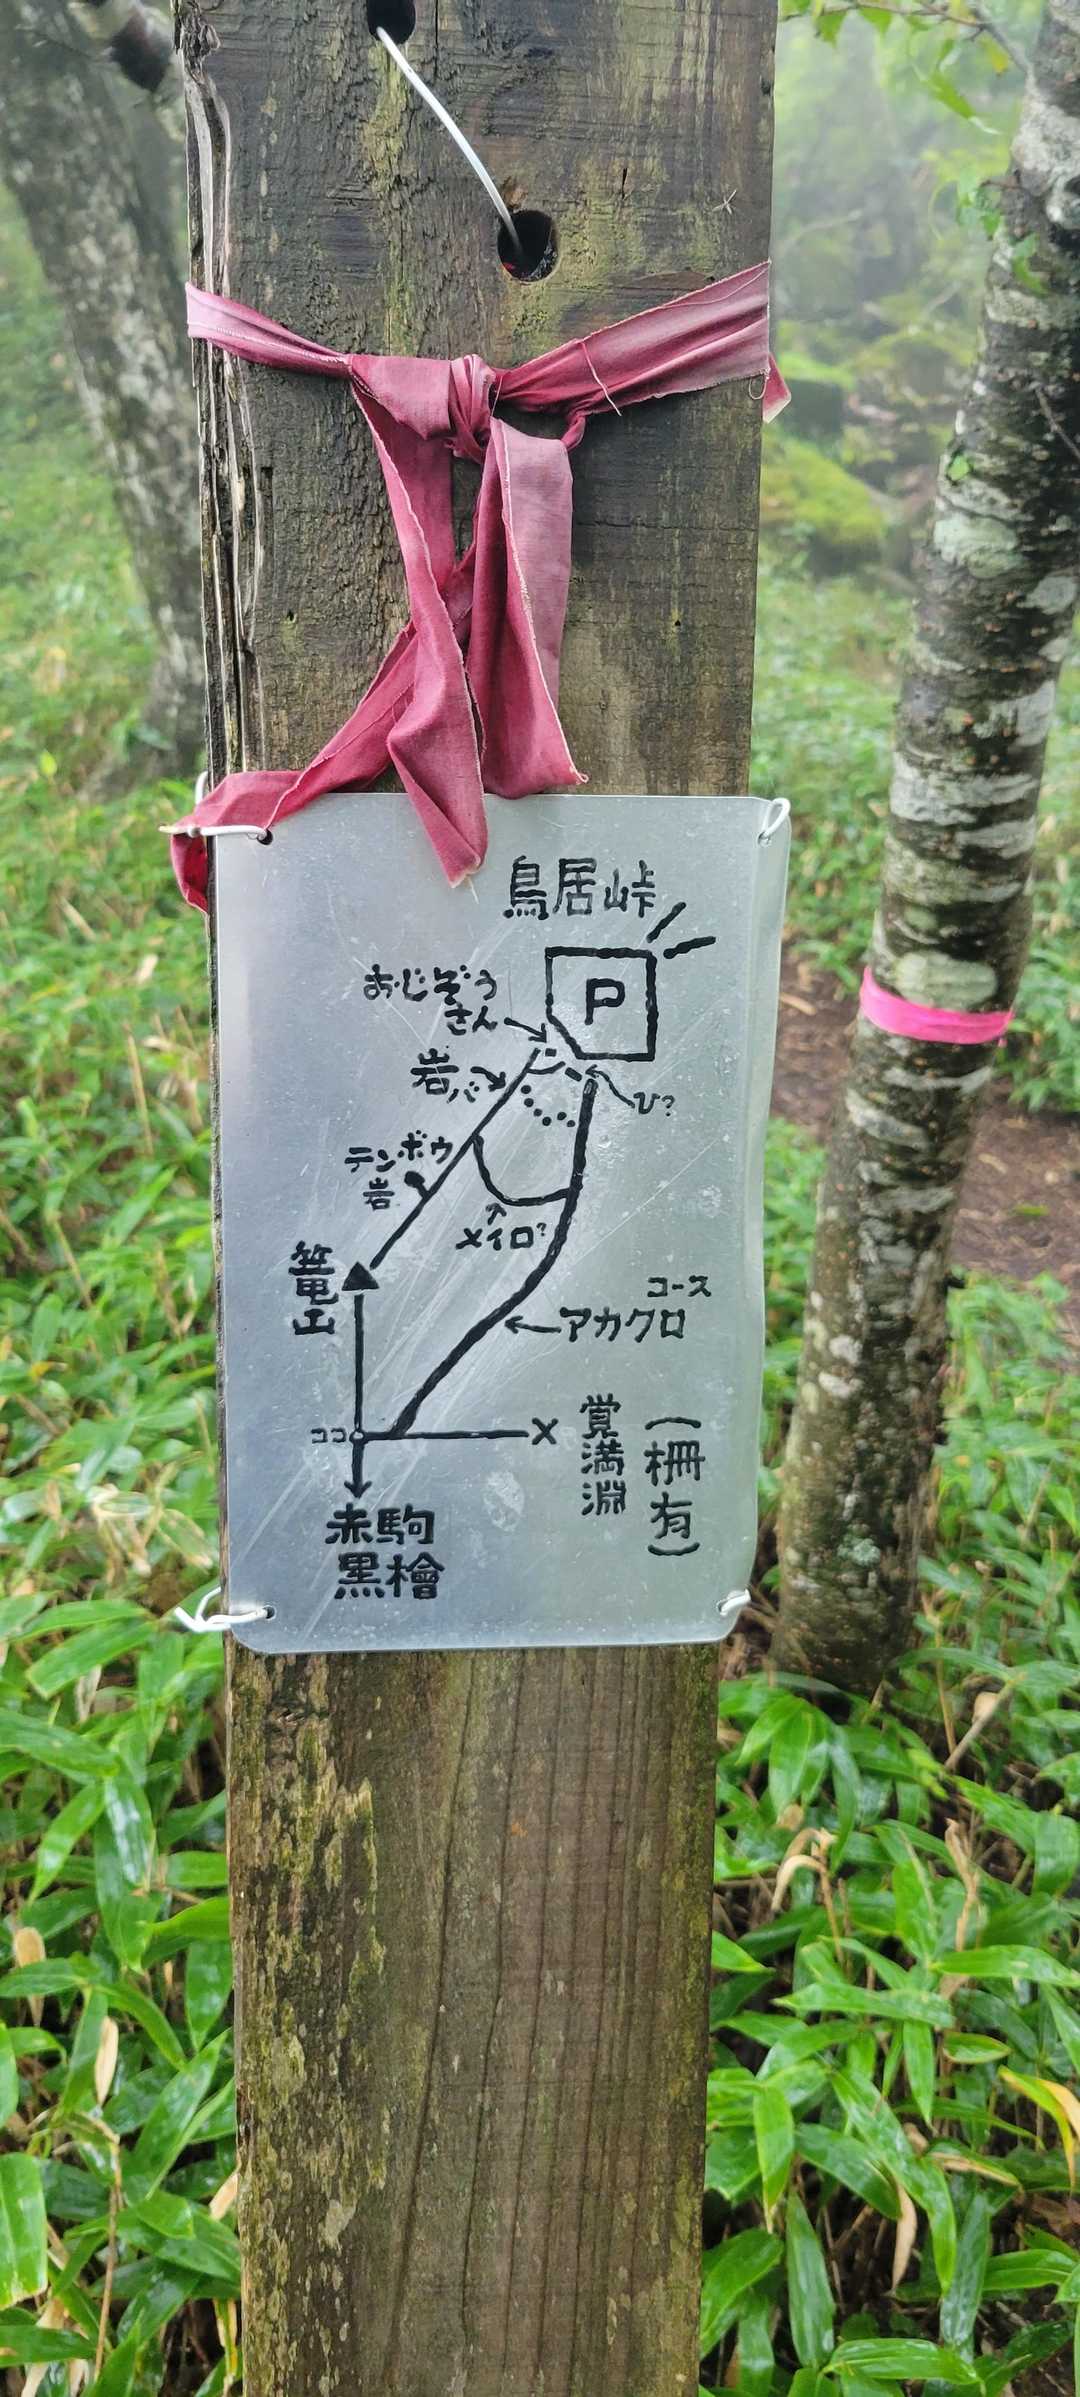 鳥居峠
P
おじぞう
さん
岩バ
ひ?
テンボウ
岩
メイロ?
篭山
コース
アカクロ
ココ
X
覚満淵
(柵有)
赤駒
黒檜